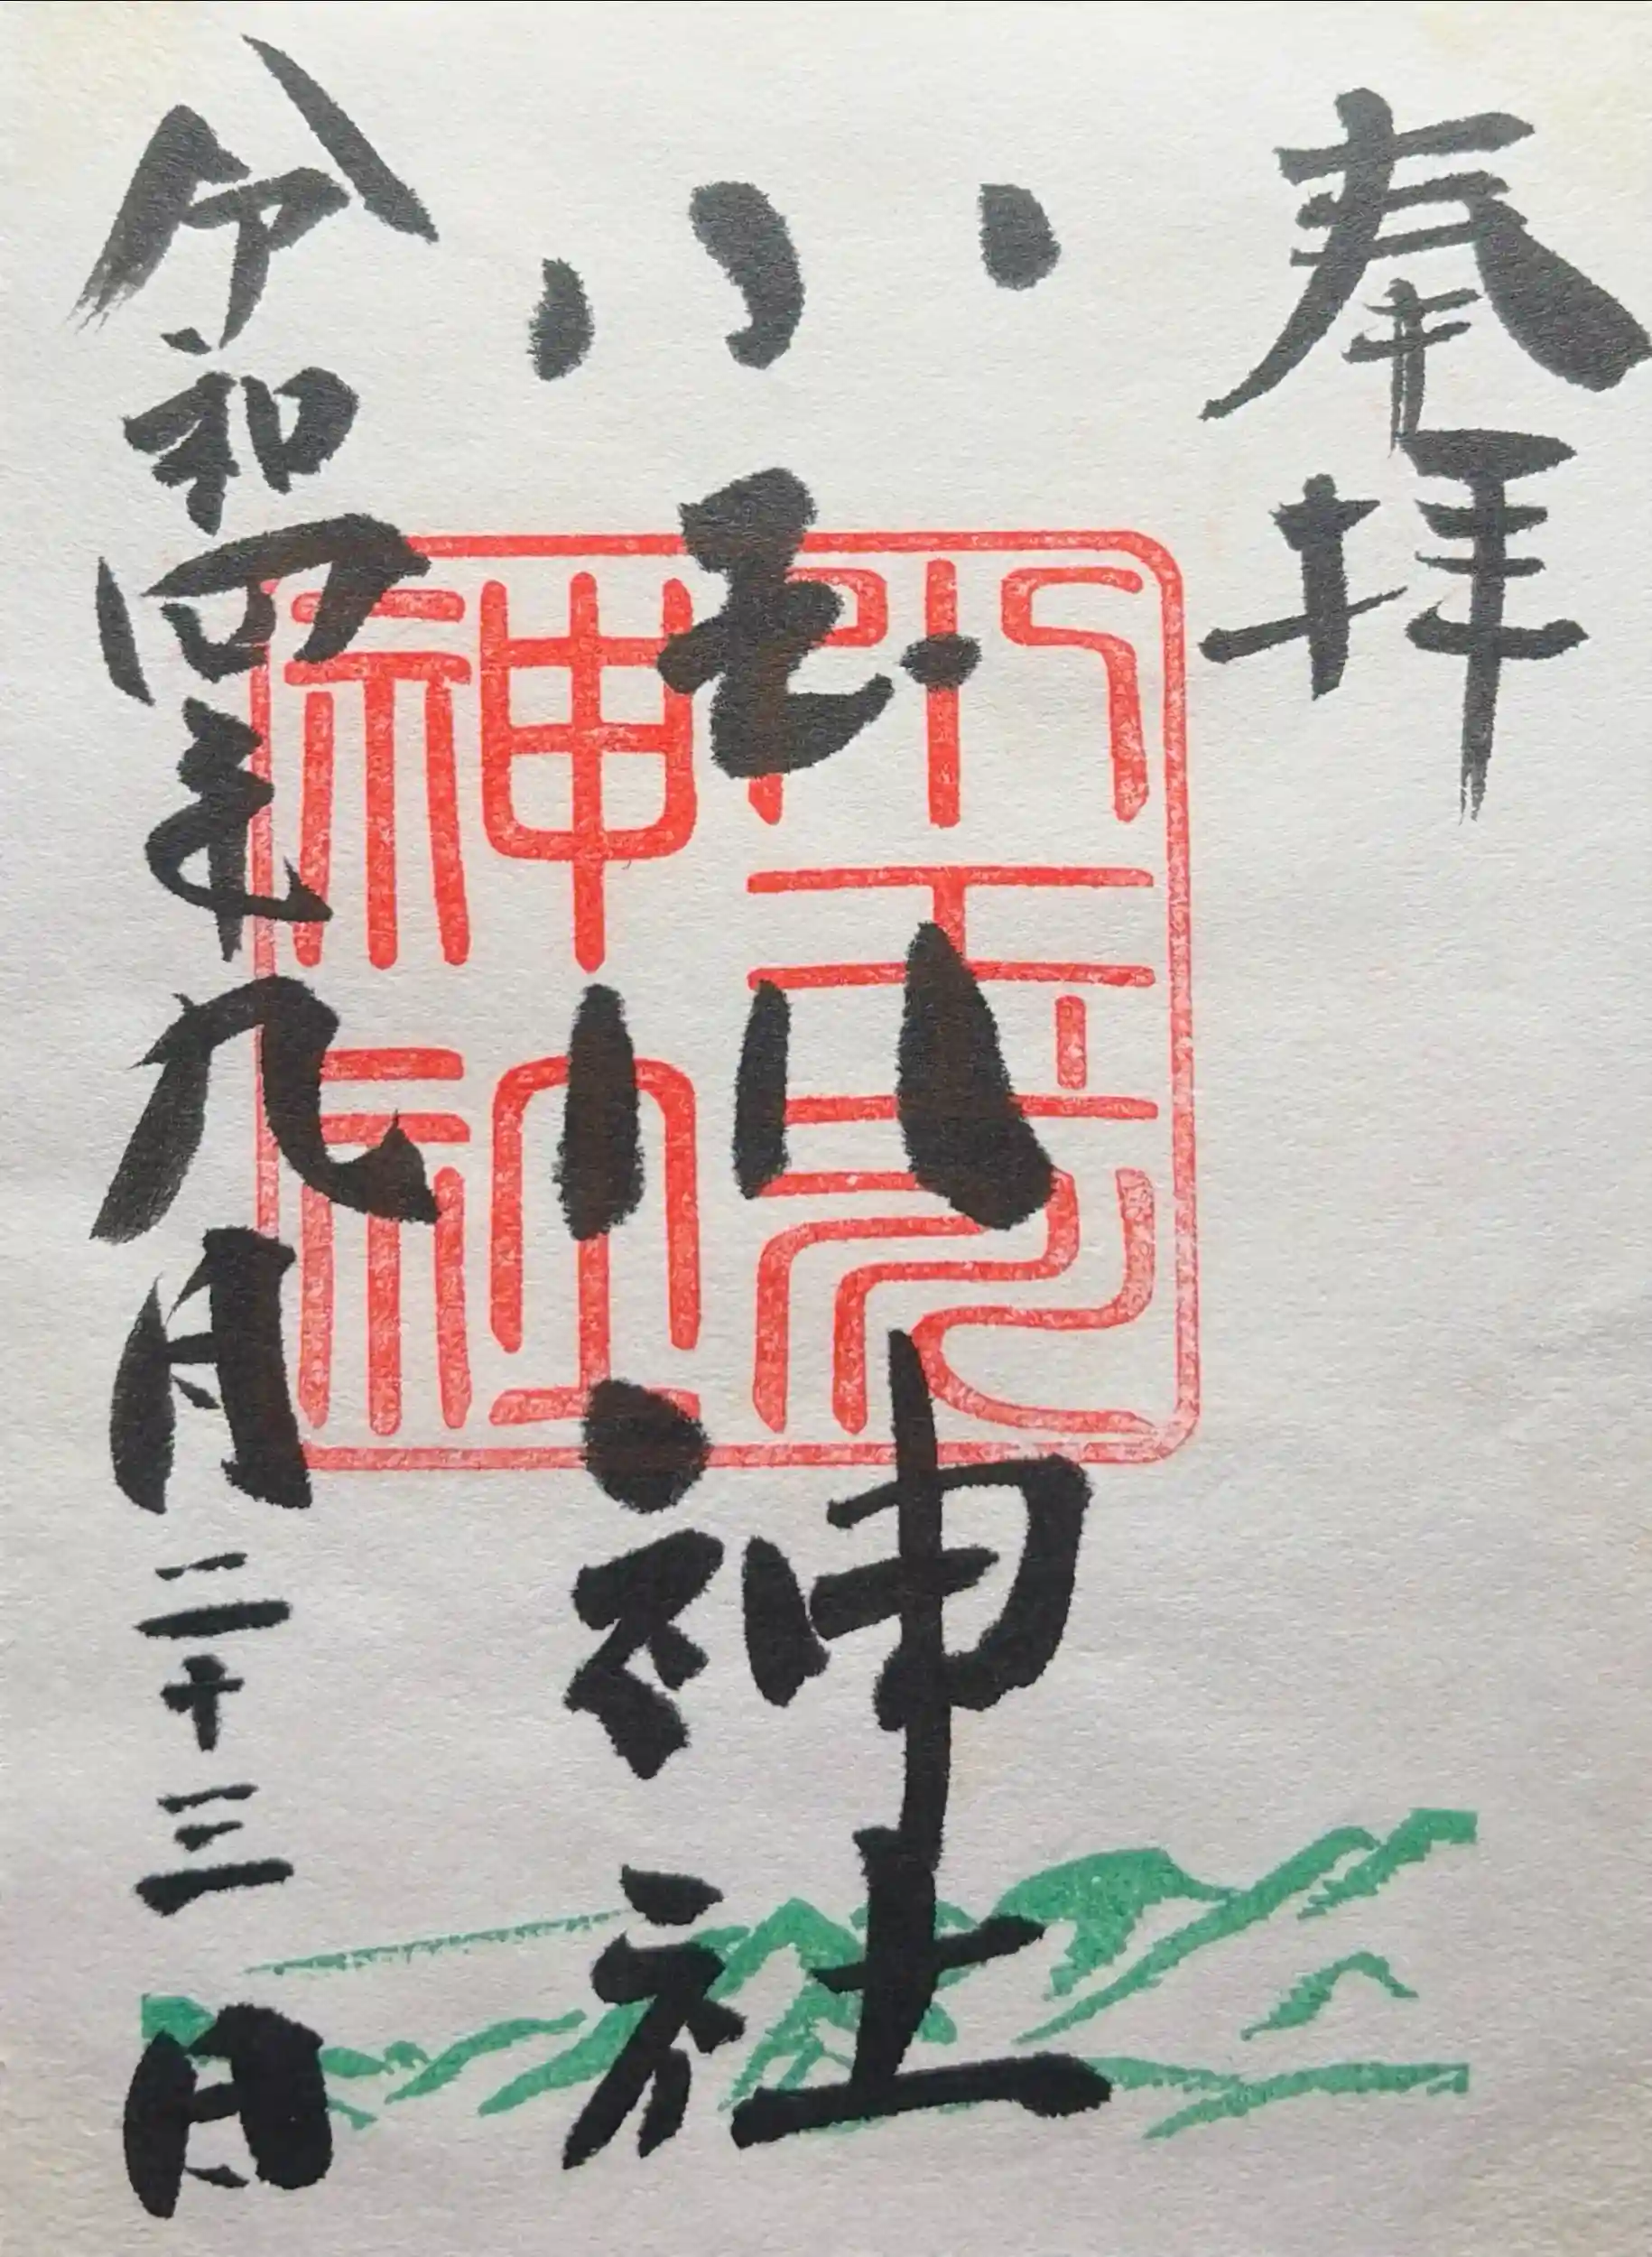 奉拝
小玉川神社
令和四年九月二十三日
小玉川
神社